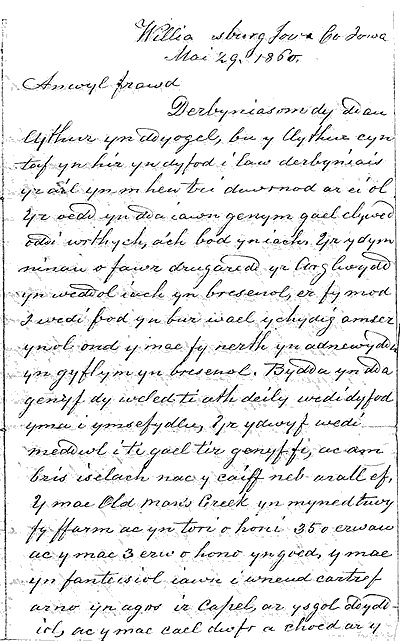 Williamsburg Iowa Co Iowa
Mai 29. 1860.
Anwyl frawd
Derbyniasom dy ddau
lythur yn ddyogel, bu y llythur cyn
taf yn hir yn dyfod i law derbyniais
yr ail yn mhen tri diwrnod ar ei ol
Yr oedd yn dda iawn genym gael clywed
oddi wrthych, a'ch bod yn iach, Yr ydym
ninau o fawr drugaredd yr Arglwydd
yn weddol iach yn bresenol, er fy mod
I wedi bod yn bur wael ychydig amser
yn ol ond y mae fy nerth yn adnewyddu
yn gyflym yn bresenol. Bydda yn dda
genyf dy weled ti ath deily wedi dyfod
yma i ymsefydlu, Yr ydwyf wedi
meddwl i ti gael tir genyf fi, ac am
bris iselach nac y caiff neb arall ef,
Y mae Old Man's Creek yn myned trwy
fy ffarm ac yn tori o honi 35 o erwau
ac y mae 3 erw o hono yn goed, y mae
yn fanteisiol iawn i wneud cartref
arno yn agos i'r Capel, ar ysgol ddydd
iol, ac y mae cael dwfr a choed ar y